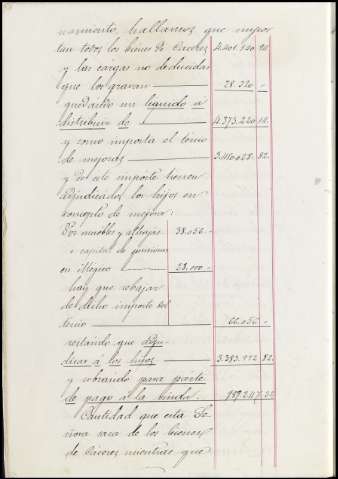 namiento, hallamos que impor
tan todos los bienes de Cáceres 4.401.540
y las cargas no deducidas
que los gravan 28.320 -
quedando un líquido a
distribuir de 4.373.220
y como importa el tercio
de mejoras 82
y por este importe tienen
adjudicados los hijos en
concepto de mejora:
Por muebles y alhajas 38.056 -
" capital de pensiones
en Méjico 28.000 -
hay que rebajar
de dicho importe del
tercio 66.056 -
restando que adju
dicar a los hijos 82
y sobrando para parte
de pago a la viuda
Cantidad que esta Se
ñora saca de los bienes
de Cáceres mientras que